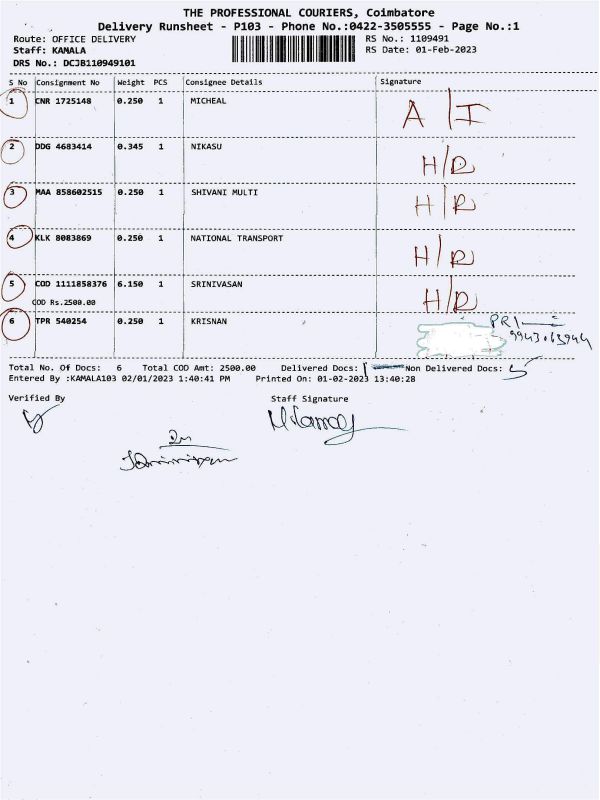 THE PROFESSIONAL COURIERS, Coimbatore
Delivery Runsheet - P103 - Phone No.:0422-3505555 - Page No.:1
Route: OFFICE DELIVERY RS No.: 1109491
Staff: KAMALA RS Date: 01-Feb-2023
DRS No.: DCJB110949101
S No Consignment No Weight PCS Consignee Details Signature
1 CNR 1725148 0.250 1 MICHEAL A/I
2 DDG 4683414 0.345 1 NIKASU H/D
3 MAA 858602515 0.250 1 SHIVANI MULTI H/D
4 KLK 8083869 0.250 1 NATIONAL TRANSPORT H/D
5 COD 1111858376 6.150 1 SRINIVASAN H/D
COD Rs.2500.00
6 TPR 540254 0.250 1 KRISNAN
Total No. Of Docs: 6 Total COD Amt: 2500.00 Delivered Docs: 1 Non Delivered Docs: 5
Entered By :KAMALA103 02/01/2023 1:40:41 PM Printed On: 01-02-2023 13:40:28
Verified By Staff Signature